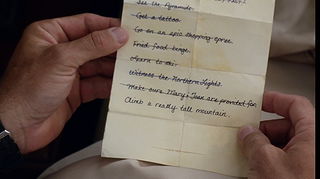 See the Pyramids.
Get a tattoo.
Go on an epic shopping spree.
Fried food binge.
Learn to ski.
Witness the Northern Lights.
Make sure Mary & Joan are provided for.
Climb a really tall mountain.